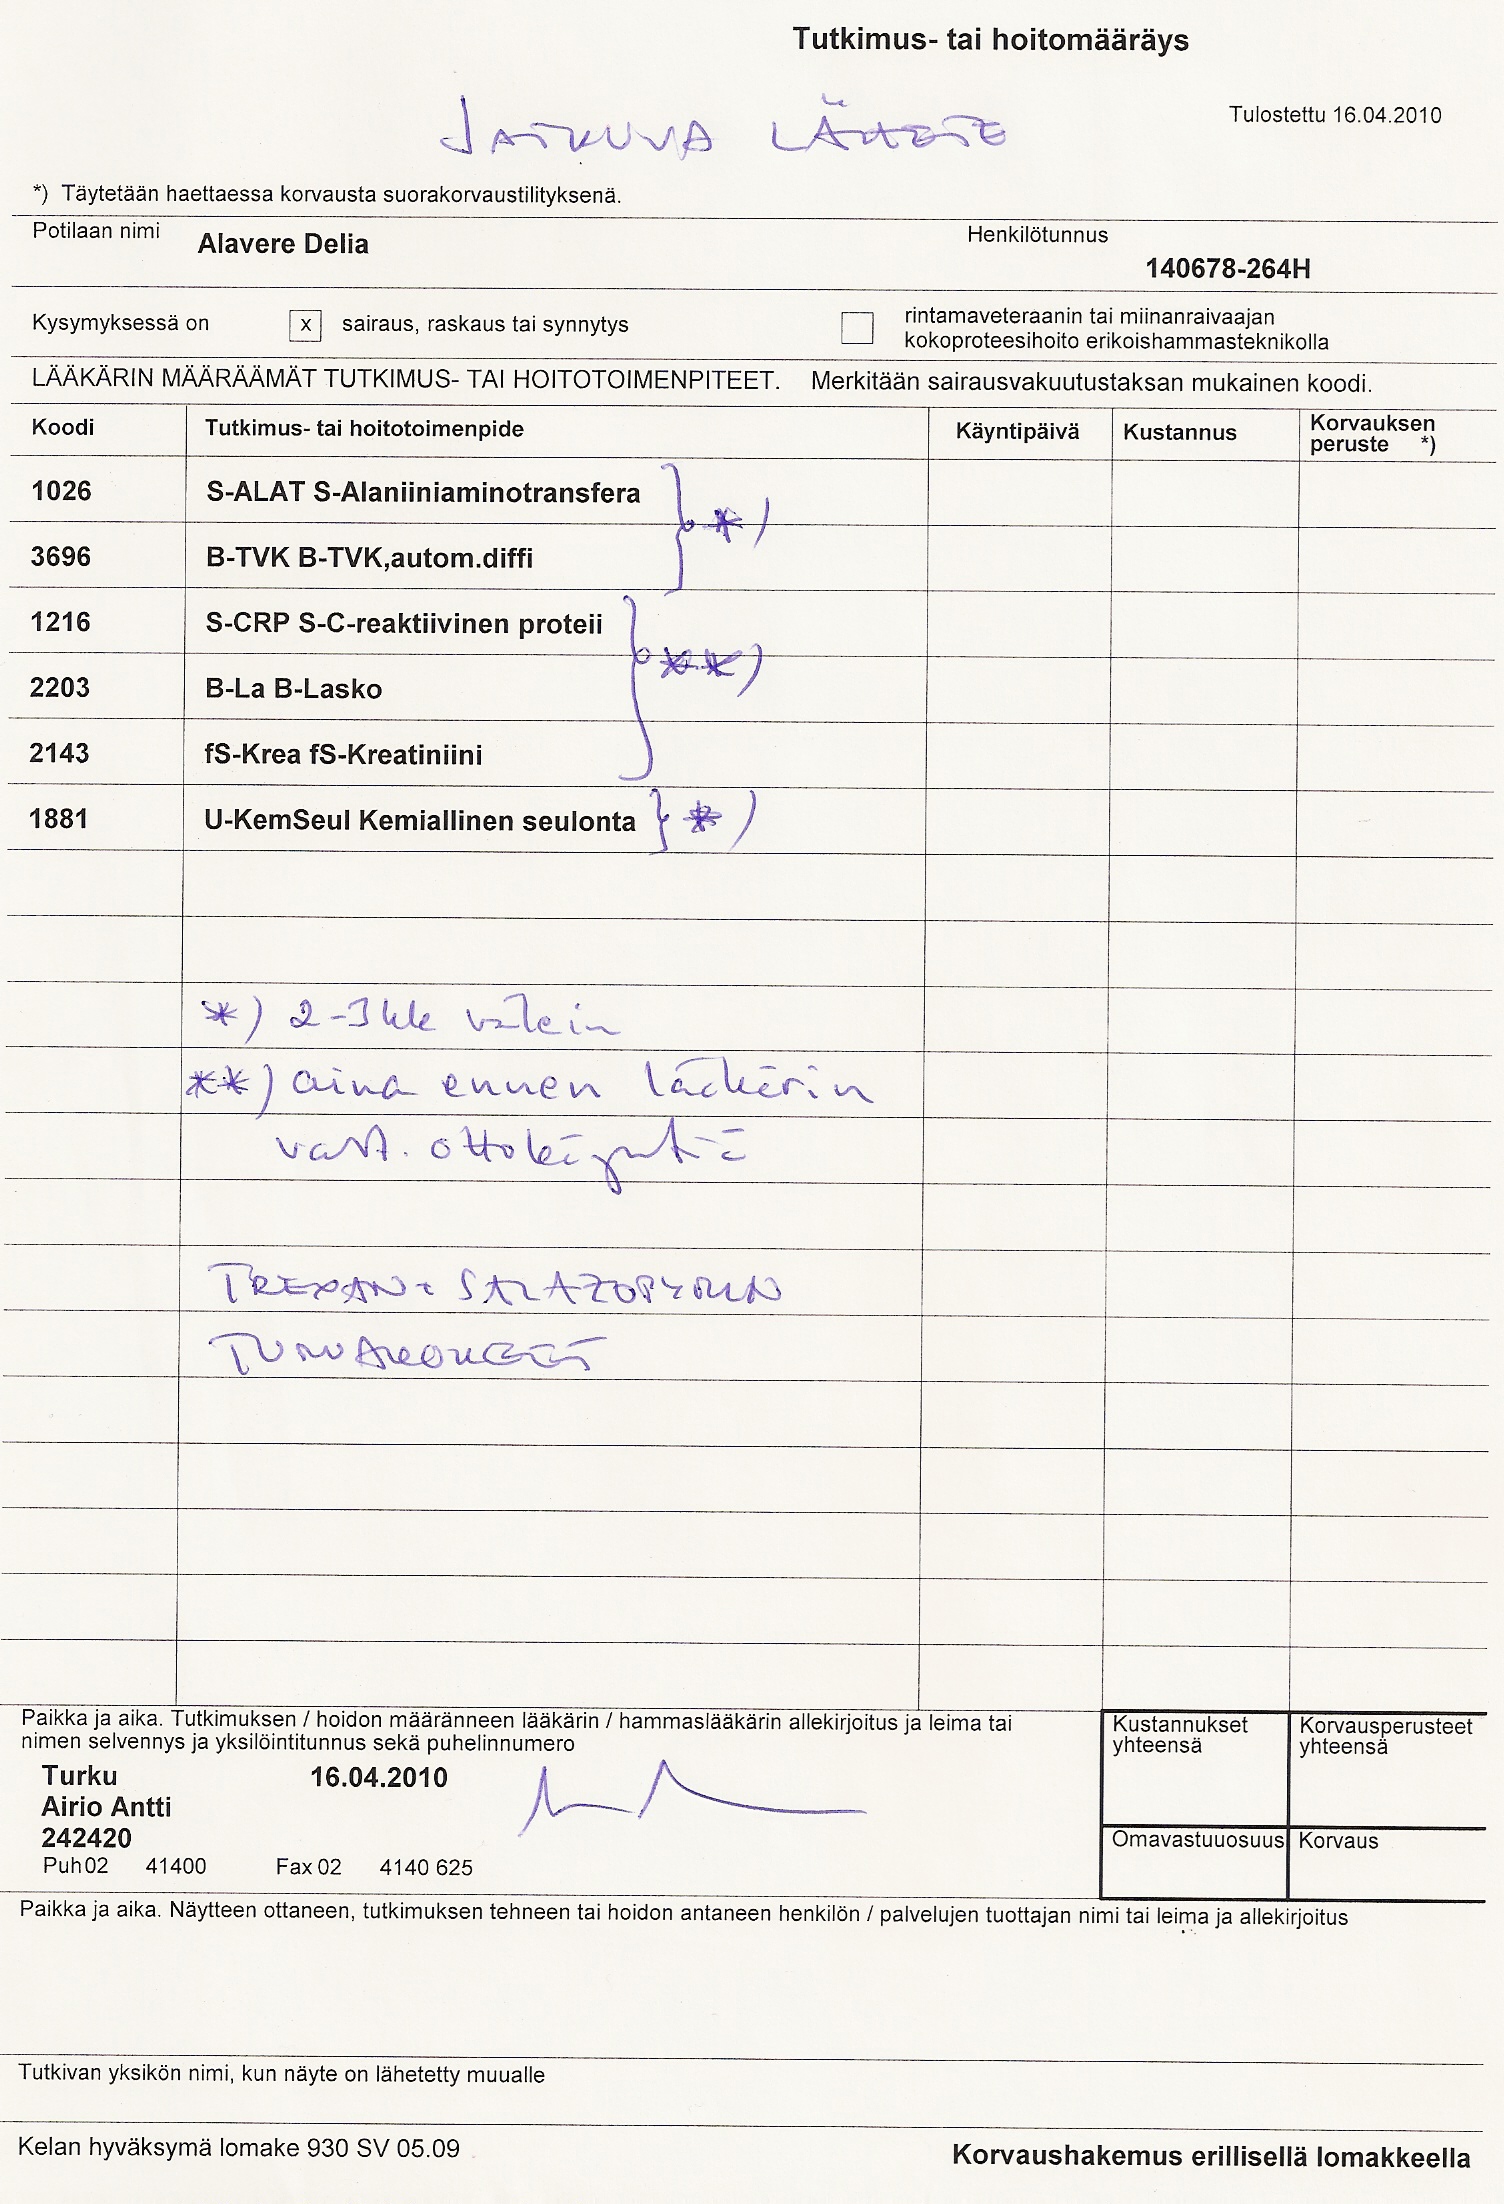 Tutkimus- tai hoitomääräys
JATKUVA LÄHETE
Tulostettu 16.04.2010
*) Täytetään haettaessa korvausta suorakorvaustilityksenä.
Potilaan nimi Alavere Delia Henkilötunnus 140678-264H
Kysymyksessä on x sairaus, raskaus tai synnytys
rintamaveteraanin tai miinanraivaajan
kokoproteesihoito erikoishammasteknikolla
LÄÄKÄRIN MÄÄRÄÄMÄT TUTKIMUS- TAI HOITOTOIMENPITEET. Merkitään sairausvakuutustaksan mukainen koodi.
Koodi Tutkimus- tai hoitotoimenpide Käyntipäivä Kustannus Korvauksen
peruste *)
1026 S-ALAT S-Alaniiniaminotransfera
*)
3696 B-TVK B-TVK,autom.diffi
1216 S-CRP S-C-reaktiivinen proteii
**)
2203 B-La B-Lasko
2143 fS-Krea fS-Kreatiniini
1881 U-KemSeul Kemiallinen seulonta *)
*) 2-3 kk välein
**) aina ennen lääkärin
vast. ottokäyntiä
TREXAN + SALAZOPYRIN
TURVAKOKEET
Paikka ja aika. Tutkimuksen / hoidon määränneen lääkärin / hammaslääkärin allekirjoitus ja leima tai
nimen selvennys ja yksilöintitunnus sekä puhelinnumero
Kustannukset
yhteensä
Korvausperusteet
yhteensä
Turku 16.04.2010
Airio Antti
242420
Omavastuuosuus Korvaus
Puh 02 41400 Fax 02 4140 625
Paikka ja aika. Näytteen ottaneen, tutkimuksen tehneen tai hoidon antaneen henkilön / palvelujen tuottajan nimi tai leima ja allekirjoitus
Tutkivan yksikön nimi, kun näyte on lähetetty muualle
Kelan hyväksymä lomake 930 SV 05.09
Korvaushakemus erillisellä lomakkeella